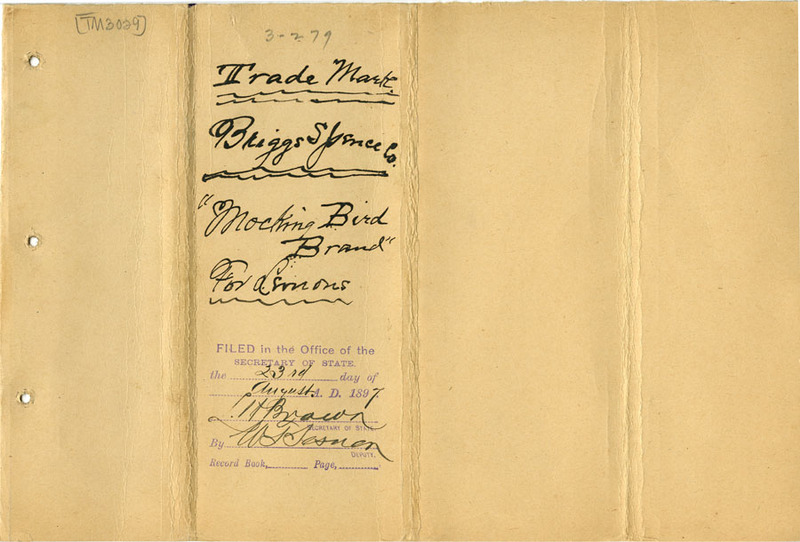 [TM3029]
3-2-79
Trade Mark.
Briggs Spence Co.
"Mocking Bird
Brand"
For Lemons
FILED in the Office of the
SECRETARY OF STATE.
the 23rd day of
August A. D. 1897.
L. H. Brown
SECRETARY OF STATE
By W. T.
DEPUTY.
Record Book, Page,